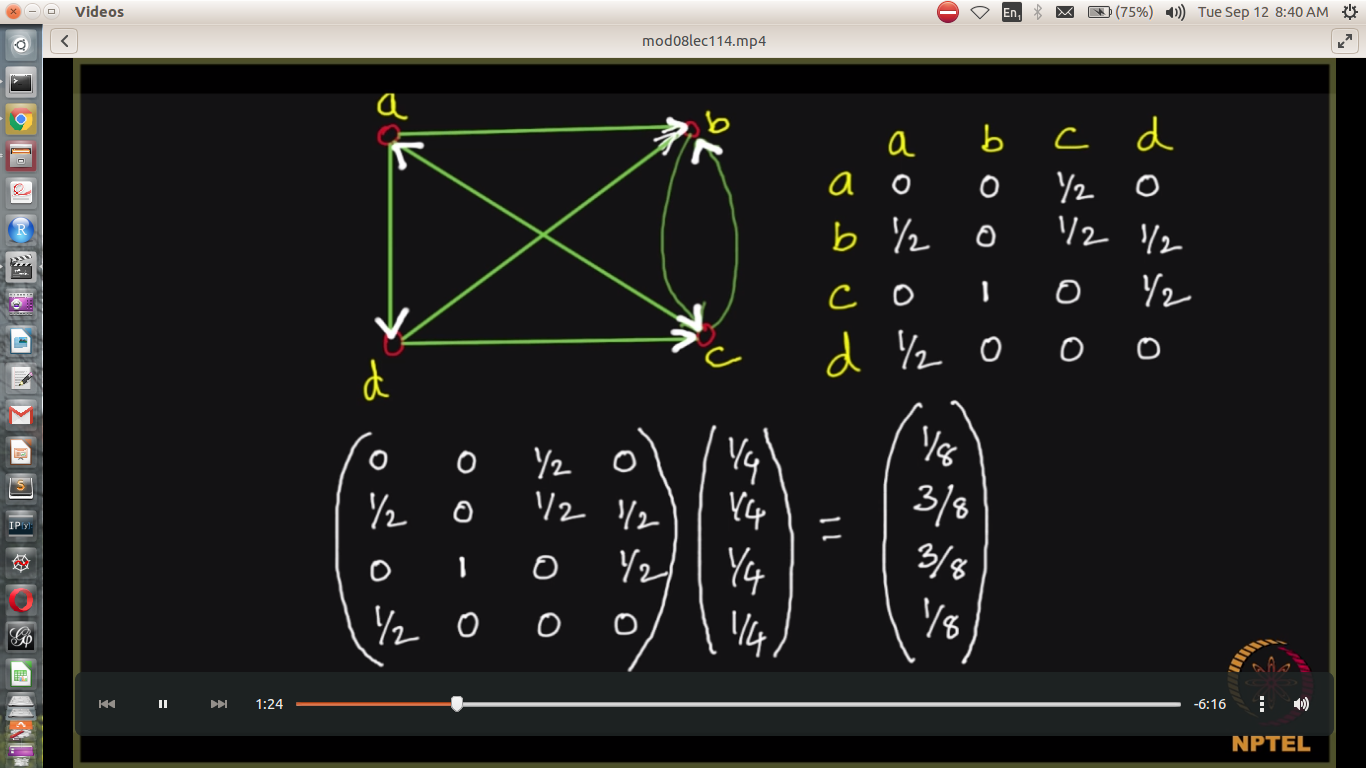 Videos
En1
(75%)
Tue Sep 12 8:40 AM
mod08lec114.mp4
a
b
d
c
a b c d
a 0 0 1/2 0
b 1/2 0 1/2 1/2
c 0 1 0 1/2
d 1/2 0 0 0
0 0 1/2 0
1/2 0 1/2 1/2
0 1 0 1/2
1/2 0 0 0
1/4
1/4
1/4
1/4
=
1/8
3/8
3/8
1/8
1:24
-6:16
NPTEL